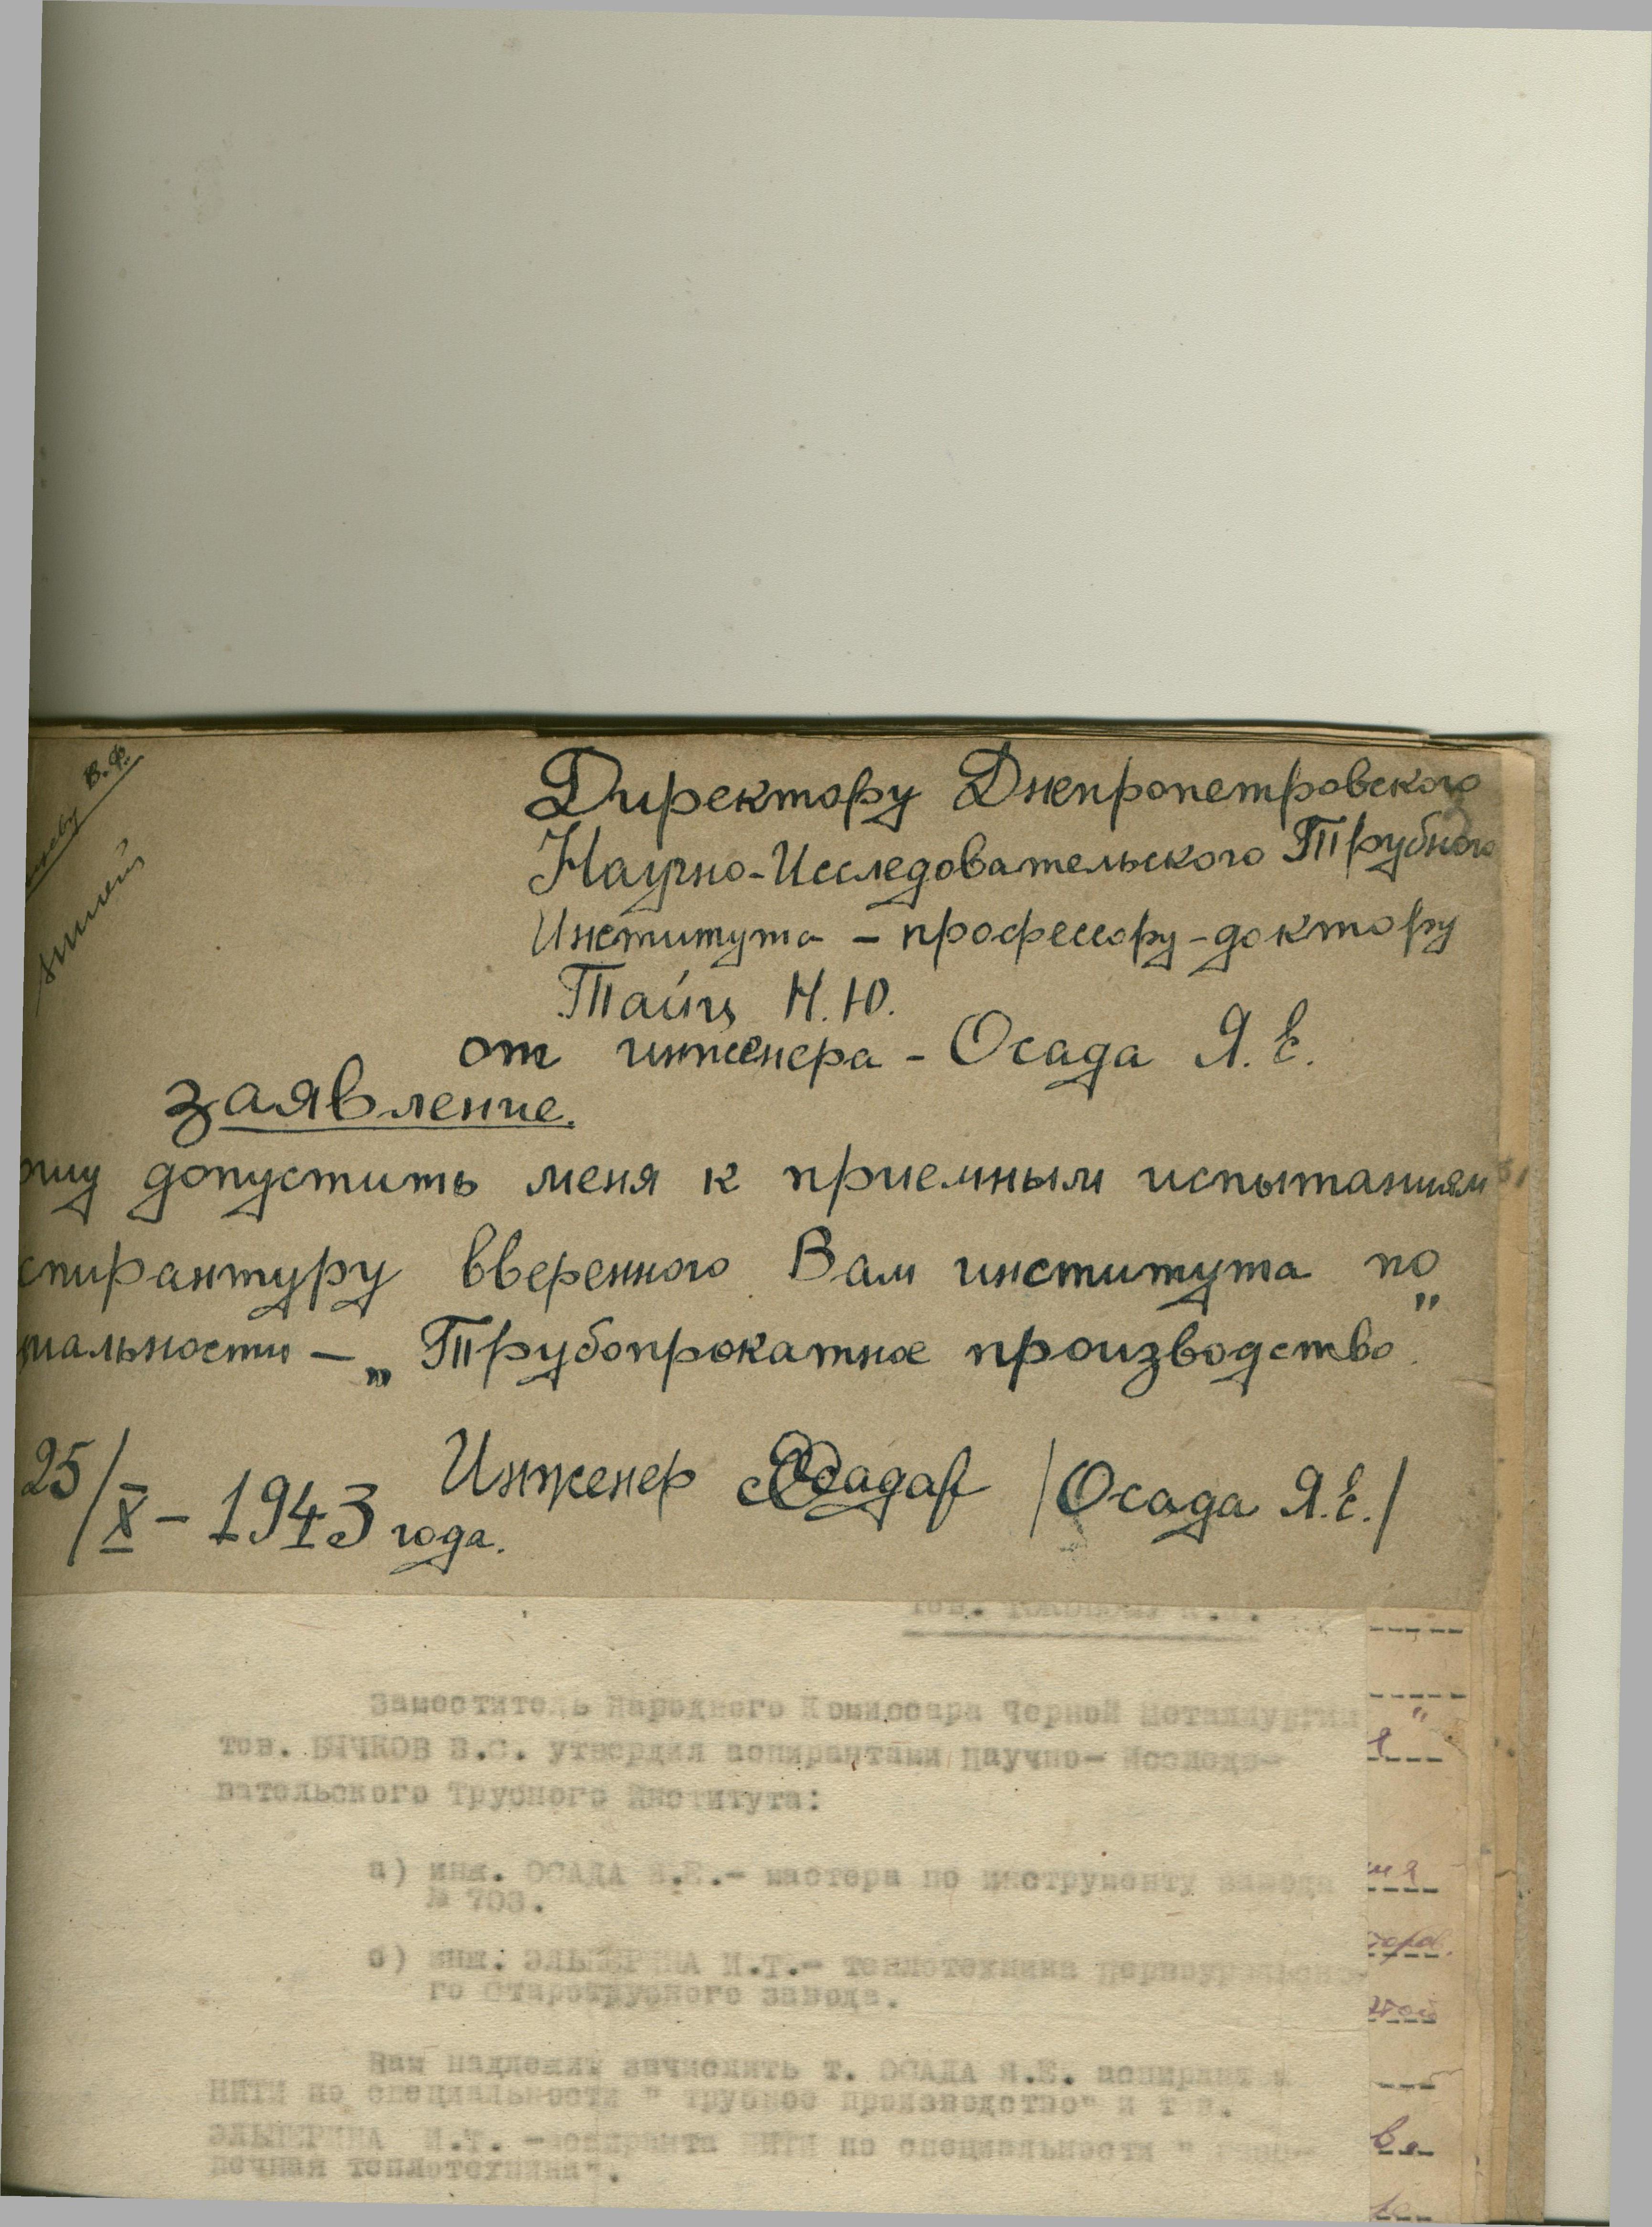 В.Ф.
Директору Днепропетровского
Научно-Исследовательского Трубного
Института – профессору-доктору
Тайц Н.Ю.
от инженера – Осада Я.Е.
заявление.
ошу допустить меня к приемным испытаниям
спирантуру вверенного Вам института по
иальности – „Трубопрокатное производство".
25/X – 1943 года.
Инженер /Осада Я.Е./
тов.
Заместитель Народного Комиссара Черной Металлургии
тов. БЫЧКОВ В.С. утвердил аспирантами Научно- Исследо-
вательского Трубного Института:
а) инж. ОСАДА Я.Е.- мастера по инструменту завода
№ 703.
б) инж. И.Т.- теплотехника Первоуральско-
го Старотрубного завода.
Вам надлежит зачислить т. ОСАДА Я.Е. аспирантом
НИТИ по специальности " трубное производство" и тов.
И.Т. -аспиранта НИТИ по специальности "
печная теплотехника".